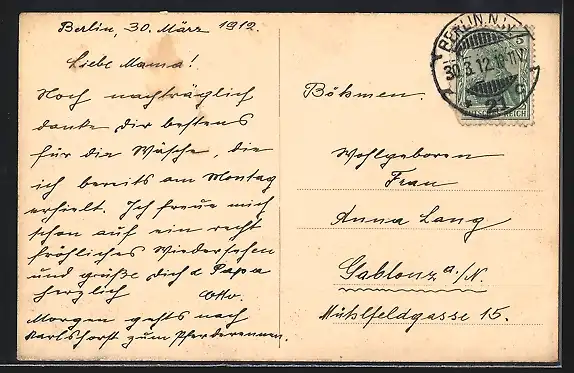 Berlin, 30. März 1912.
Liebe Mama!
Noch nachträglich
danke Dir bestens
für die Wäsche, die
ich bereits am Montag
erhielt. Ich freue mich
schon auf ein recht
fröhliches Wiedersehen
und grüße Dich & Papa
herzlich Otto.
Morgen gehts nach
Karlshorst zum Pferderennen.
BERLIN. N.W.
30.3.12.10-11V.
* 21 c
5
REICH
Böhmen.
Wohlgeboren
Frau
Anna Lang
Gablonz a./N.
Mühlfeldgasse 15.